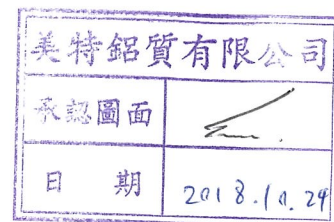 美特鋁質有限公司
承認圖面
日期 2018.10.29